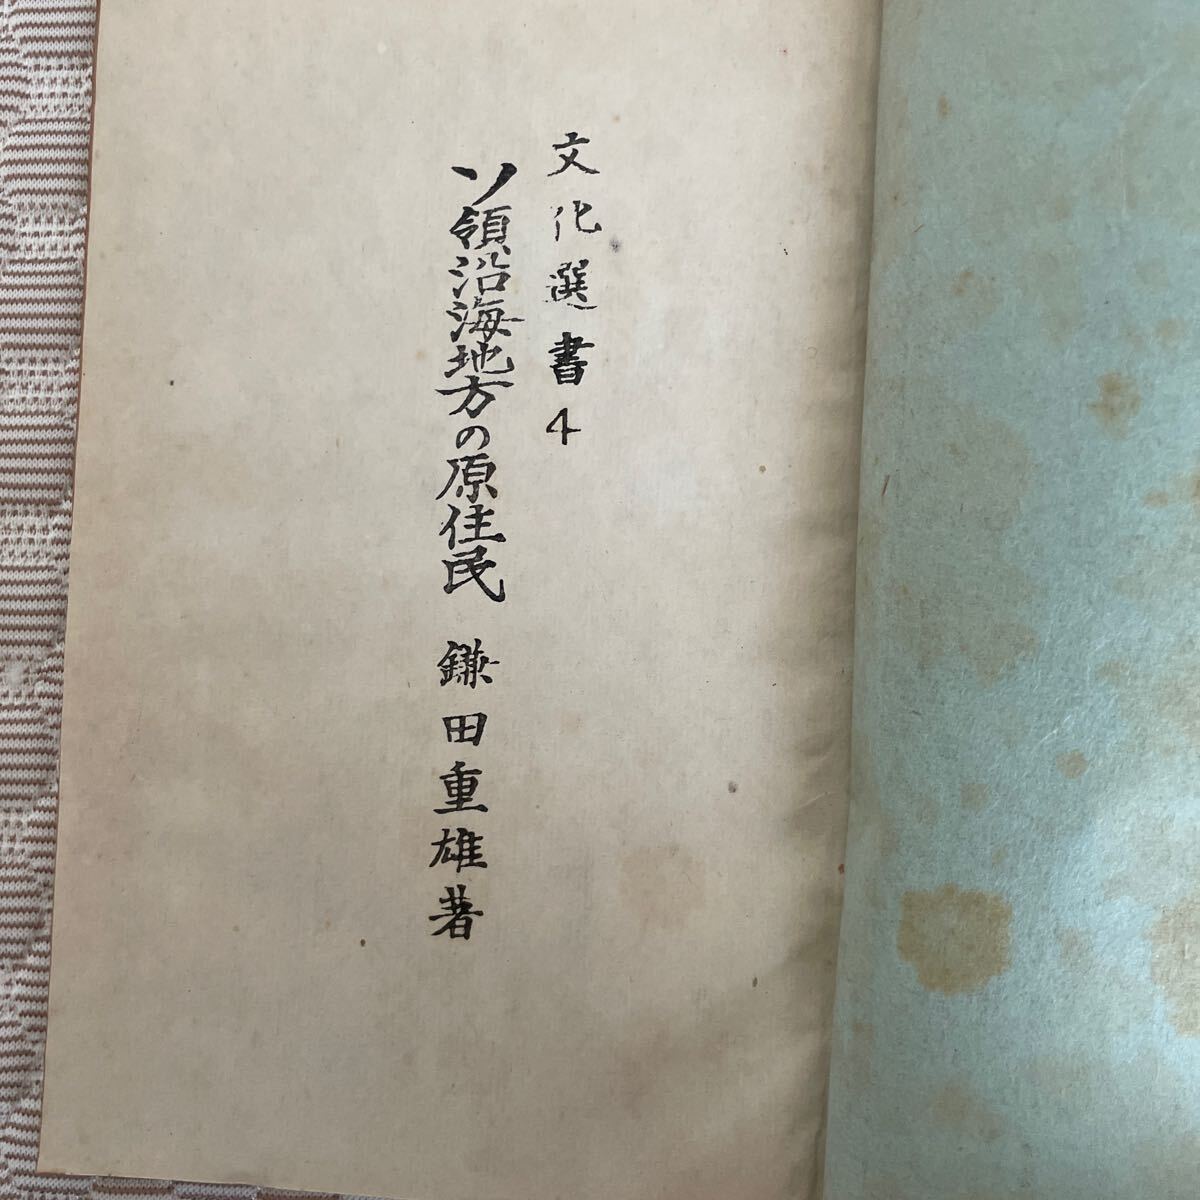 文化選書4
ソ領沿海地方の原住民 鎌田重雄著